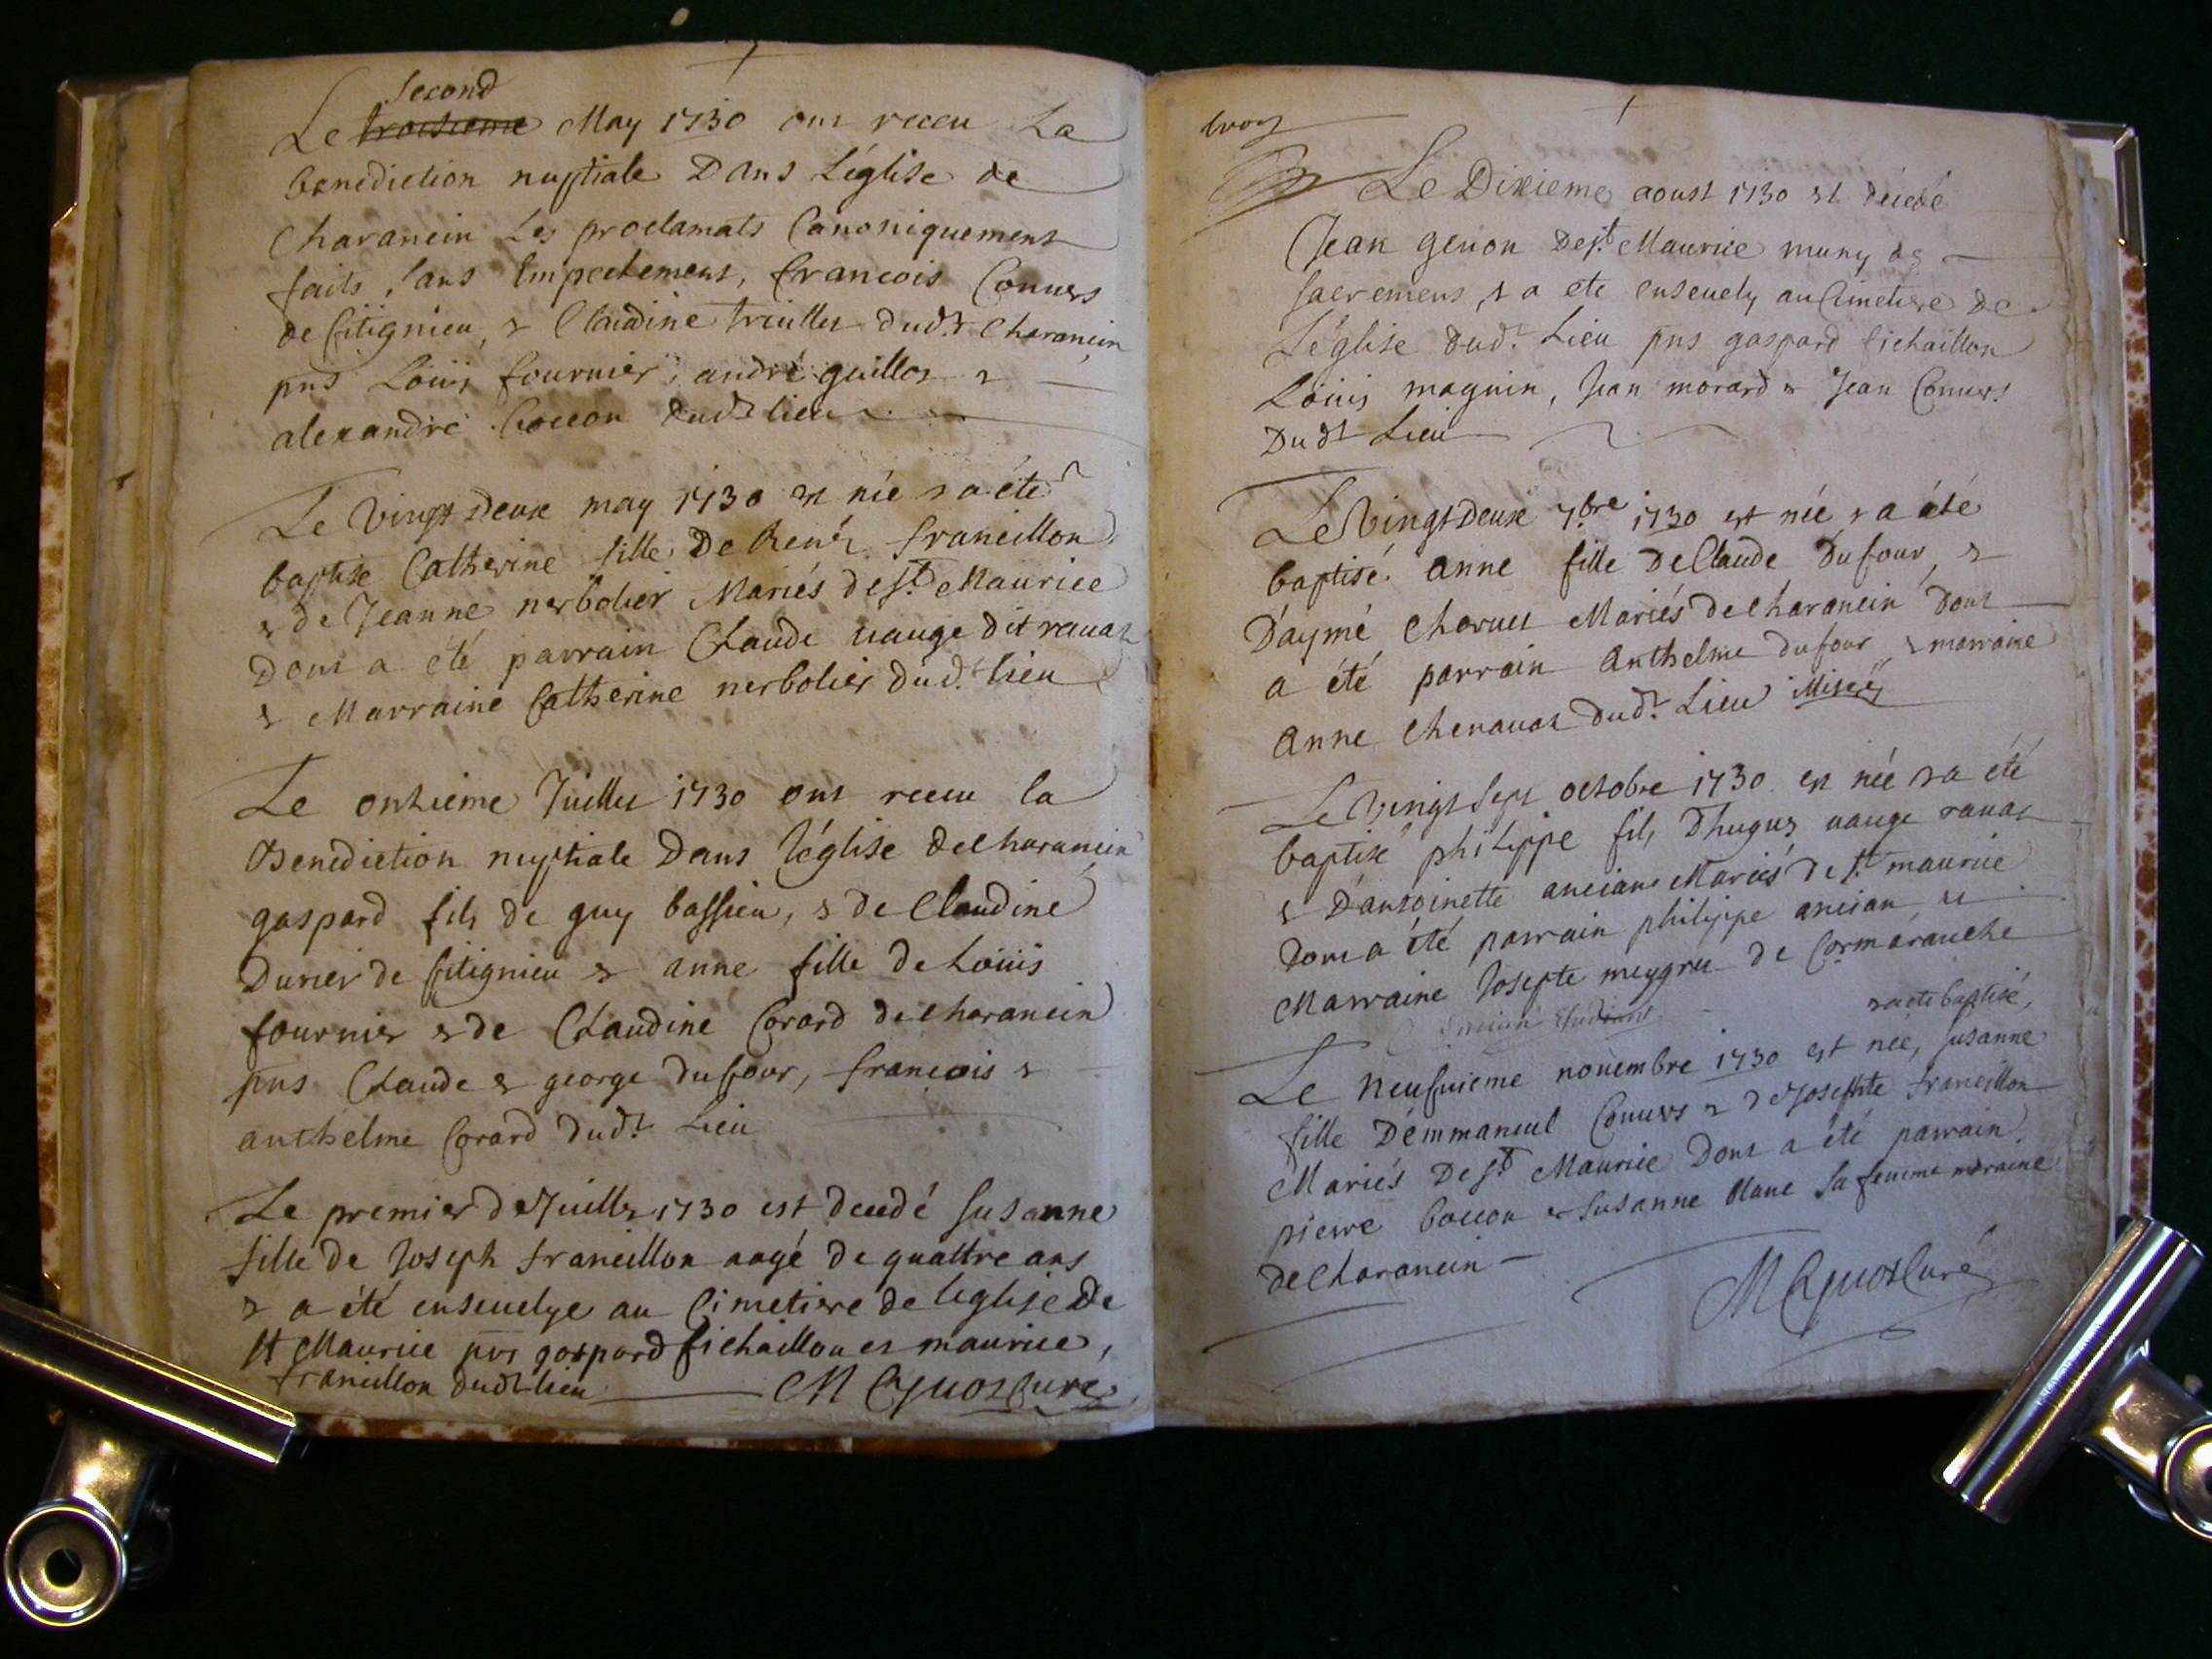 Second
Le troisieme May 1730 ont receu La
benediction nuptiale Dans L'église de
Charancin Les proclamats Canoniquement
faits sans Empechement, francois Convers
de fitignieu, & Claudine trûllet dud.t Charancin
pns Loüis fournier, andré guillot &
alexandre boccon dudt lieu
Le vingt Deux may 1730 est née & a été
baptisé Catherine fille De René francillon
& de Jeanne nerbolier Mariés de St. Maurice
Dont a été parrain Claude vauge dit ravat
& Marraine Catherine nerbolier dud.t Lieu
Le onzieme Juillet 1730 ont receu la
Benediction nuptiale Dans l'église de Charancin
gaspard fils de guy bassieu, & de Claudine
Durier de fitignieu & anne fille de Loüis
fournier & de Claudine Corard de Charancin
pns Claude & george dufour, francois &
anthelme Corard dud.t Lieu
Le premier de Juillet 1730 est decedé Susanne
fille de Joseph francillon aagé de quattre ans
& a été ensevelye au Cimetiere de leglise De
St Maurice pns gaspard fichaillon et maurice,
francillon dudt lieu M Cyvoct curé
Le Dixieme aoust 1730 et décédé
Jean genon De St. Maurice muny des
sacremens, & a ete ensevely au Cimetiere De
L'église Dud.t Lieu pns gaspard fichaillon
Loüis magnin, Jean morard & Jean Convers
Dudt Lieu
Le Vingt Deux 7bre 1730 est née & a été
baptisé anne fille De Claude Dufour, &
D'aymé Charvet Mariés de Charancin Dont
a été parrain Anthelme dufour & marraine
Anne Chenavat Dud.t Lieu
Le Vingt Sept octobre 1730 est née & a été
baptisé philippe fils D'hugues vauge ravat
& D'antoinette ancian Mariés De St. maurice
Dont a été parrain philippe ancian et
Marraine Josepte meygret de Cormaranche
& a été baptisé,
Le Neufvieme novembre 1730 est née, Susanne
fille D'emmanuel Convers & de Josephte francillon
Mariés De St. Maurice Dont a été parrain
pierre boccon & Susanne blanc Sa femme maraine
de Charancin
M Cyvoct Curé